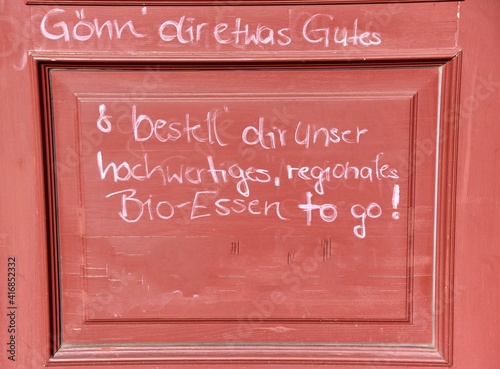 Gönn' dir etwas Gutes
& bestell' dir unser
hochwertiges, regionales
Bio-Essen to go!
Adobe Stock | #416852332